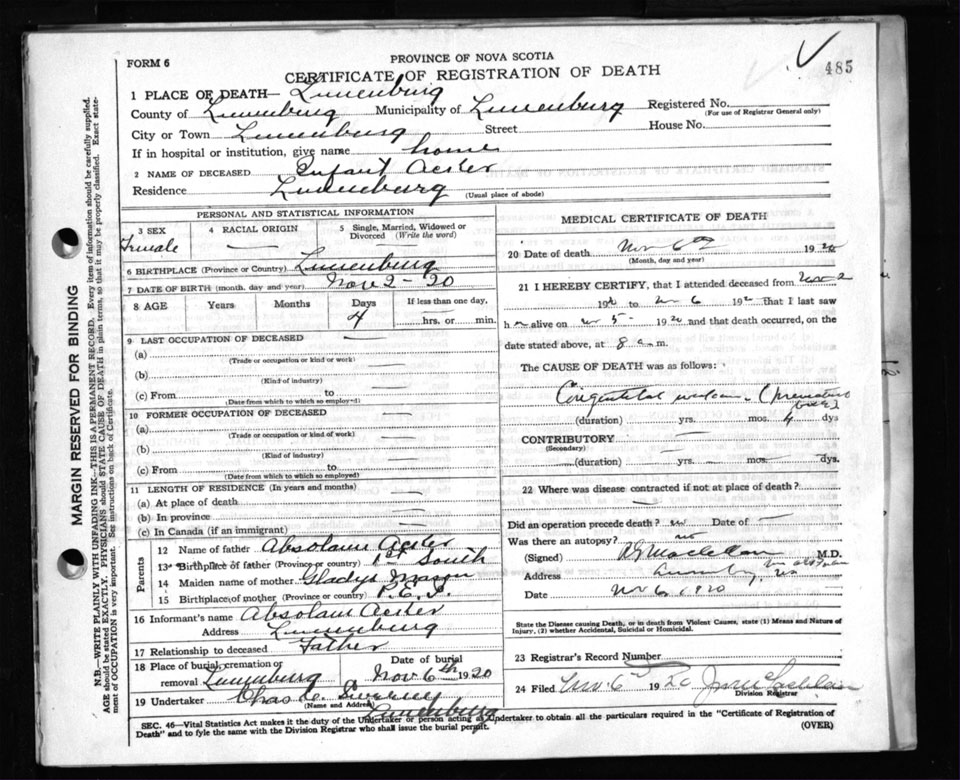 485
FORM 6
PROVINCE OF NOVA SCOTIA
CERTIFICATE OF REGISTRATION OF DEATH
1 PLACE OF DEATH— Lunenburg
County of Lunenburg Municipality of Lunenburg Registered No.
(For use of Registrar General only)
City or Town Lunenburg Street House No.
If in hospital or institution, give name home
2 NAME OF DECEASED Infant Acker
Residence Lunenburg (Usual place of abode)
PERSONAL AND STATISTICAL INFORMATION
3 SEX 4 RACIAL ORIGIN 5 Single, Married, Widowed or Divorced (Write the word)
Female — —
6 BIRTHPLACE (Province or Country) Lunenburg
7 DATE OF BIRTH (month, day and year) Nov 2 - 20
8 AGE Years Months Days If less than one day,
4 hrs. or min.
9 LAST OCCUPATION OF DECEASED
(a)
(Trade or occupation or kind or work)
(b)
(Kind of industry)
(c) From
(Date from which to which so employed)
10 FORMER OCCUPATION OF DECEASED
(a)
(Trade or occupation or kind of work)
(b)
(Kind of industry)
(c) From
(Date from which to which so employed)
11 LENGTH OF RESIDENCE (In years and months)
(a) At place of death
(b) In province
(c) In Canada (if an immigrant)
Parents
12 Name of father Absolam Acker
13 Birthplace of father (Province or country) South
14 Maiden name of mother Gladys
15 Birthplace of mother (Province or country) P.E.I.
16 Informant's name Absolam Acker
Address Lunenburg
17 Relationship to deceased Father
18 Place of burial, cremation or removal Lunenburg Date of burial Nov 6th 1920
19 Undertaker Chas
(Name and Address) Lunenburg
MEDICAL CERTIFICATE OF DEATH
20 Date of death Nov 6th 1920
(Month, day and year)
21 I HEREBY CERTIFY, that I attended deceased from Nov 2
192 to Nov 6 192 that I last saw
h alive on Nov 5 - 1920 and that death occurred, on the
date stated above, at 8 a.m.
The CAUSE OF DEATH was as follows:
Congenital (Premature
(duration) yrs. mos. 4 dys
CONTRIBUTORY
(Secondary)
(duration) yrs. mos. dys.
22 Where was disease contracted if not at place of death?
Did an operation precede death? no Date of —
Was there an autopsy? no
(Signed) M.D.
Address
Date Nov 6 1920
State the Disease causing Death, or in death from Violent Causes, state (1) Means and Nature of
Injury, (2) whether Accidental, Suicidal or Homicidal.
23 Registrar's Record Number
24 Filed Nov 6 1920
Division Registrar
SEC. 46—Vital Statistics Act makes it the duty of the Undertaker or person acting as Undertaker to obtain all the particulars required in the "Certificate of Registration of
Death" and to fyle the same with the Division Registrar who shall issue the burial permit.
(OVER)
MARGIN RESERVED FOR BINDING
N.B.—WRITE PLAINLY WITH UNFADING INK—THIS IS A PERMANENT RECORD. Every item of information should be carefully supplied.
AGE should be stated EXACTLY. PHYSICIANS should STATE CAUSE OF DEATH in plain terms, so that it may be properly classified. Exact state-
ment of OCCUPATION is very important. See instructions on back of Certificate.